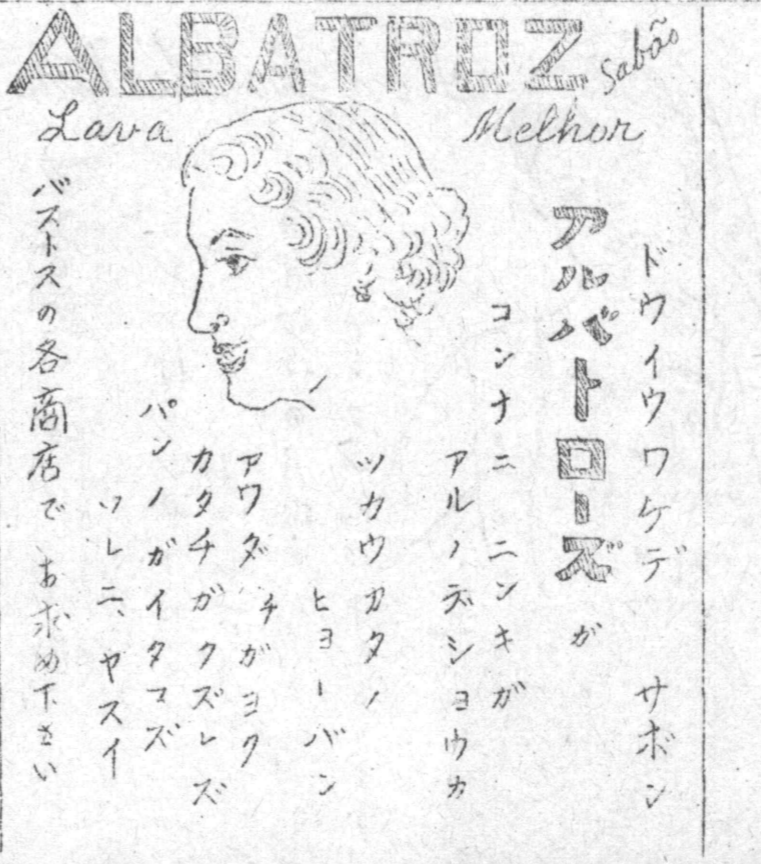 ALBATROZ Sabão
Lava Melhor
ドウイウワケデ サボン
アルバトローズが
コンナニ ニンキガ
アルノデショウカ
ツカウカタノ
ヒョーバン
アワダチガヨク
カタチガクズレズ
パンノガイタマズ
ソレニ、ヤスイ
バストスの各商店で お求め下さい